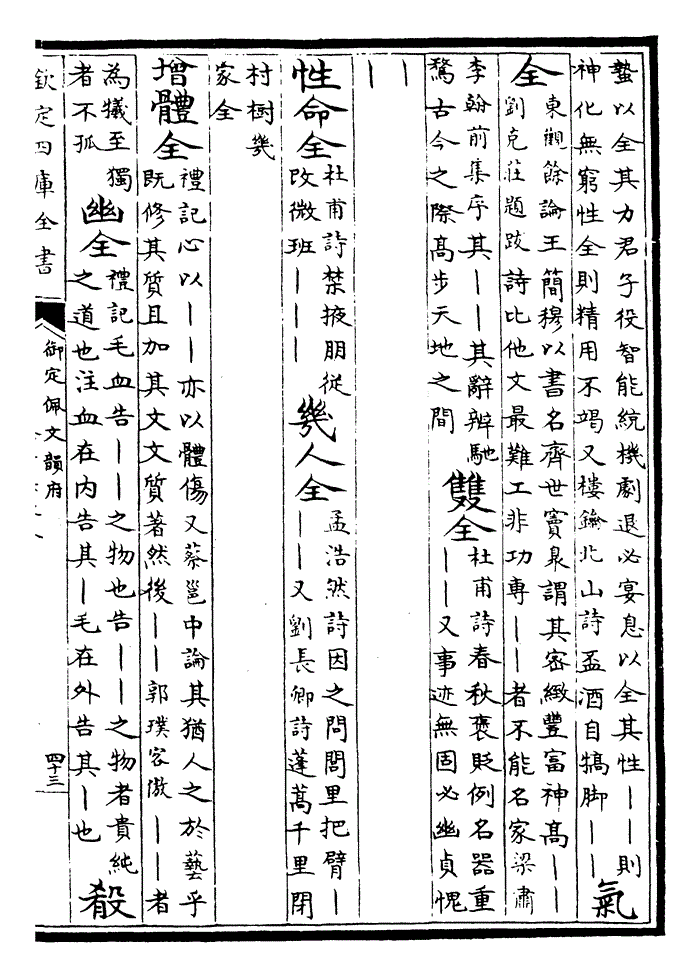 蟄以全其力君子役智能統機劇退必宴息以全其性丨丨則
神化無窮性全則精用不竭又樓鑰北山詩盃酒自犒脚丨丨
氣
全
東觀餘論王簡穆以書名齊世竇泉謂其密緻豐富神高丨丨
劉克莊題跋詩比他文最難工非功專丨丨者不能名家梁肅
李翰前集序其丨丨其辭辨馳
騖古今之際高步天地之間
雙全
杜甫詩春秋褒貶例名器重
丨丨又事迹無固必幽貞愧
丨
丨
性命全
杜甫詩禁掖朋從
改微班丨丨丨
幾人全
孟浩然詩因之問閭里把臂丨
丨丨又劉長卿詩蓬蒿千里閉
村樹幾
家全
增體全
禮記心以丨丨亦以體傷又蔡邕中論其猶人之於藝乎
既修其質且加其文文質著然後丨丨郭璞客傲丨丨者
為犧至獨
者不孤
幽全
禮記毛血告丨丨之物也告丨丨之物者貴純
之道也注血在内告其丨毛在外告其丨也
殺
欽定四庫全書
御定佩文韻府
四十三